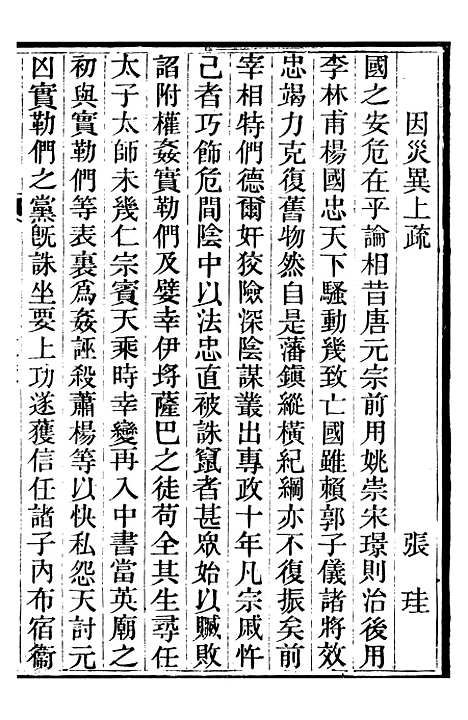 因災異上疏 張珪
國之安危在乎論相昔唐元宗前用姚崇宋璟則治後用
李林甫楊國忠天下騷動幾致亡國雖賴郭子儀諸將效
忠竭力克復舊物然自是藩鎮縱橫紀綱亦不復振矣前
宰相特們德爾奸狡險深陰謀叢出專政十年凡宗戚忤
己者巧飾危間陰中以法忠直被誅竄者甚眾始以贓敗
諂附權姦實勒們及嬖幸伊埒薩巴之徒苟全其生尋任
太子太師未幾仁宗賓天乘時幸變再入中書當英廟之
初與實勒們等表裏爲姦誣殺蕭楊等以快私怨天討元
凶實勒們之黨旣誅坐要上功遂獲信任諸子內布宿衞